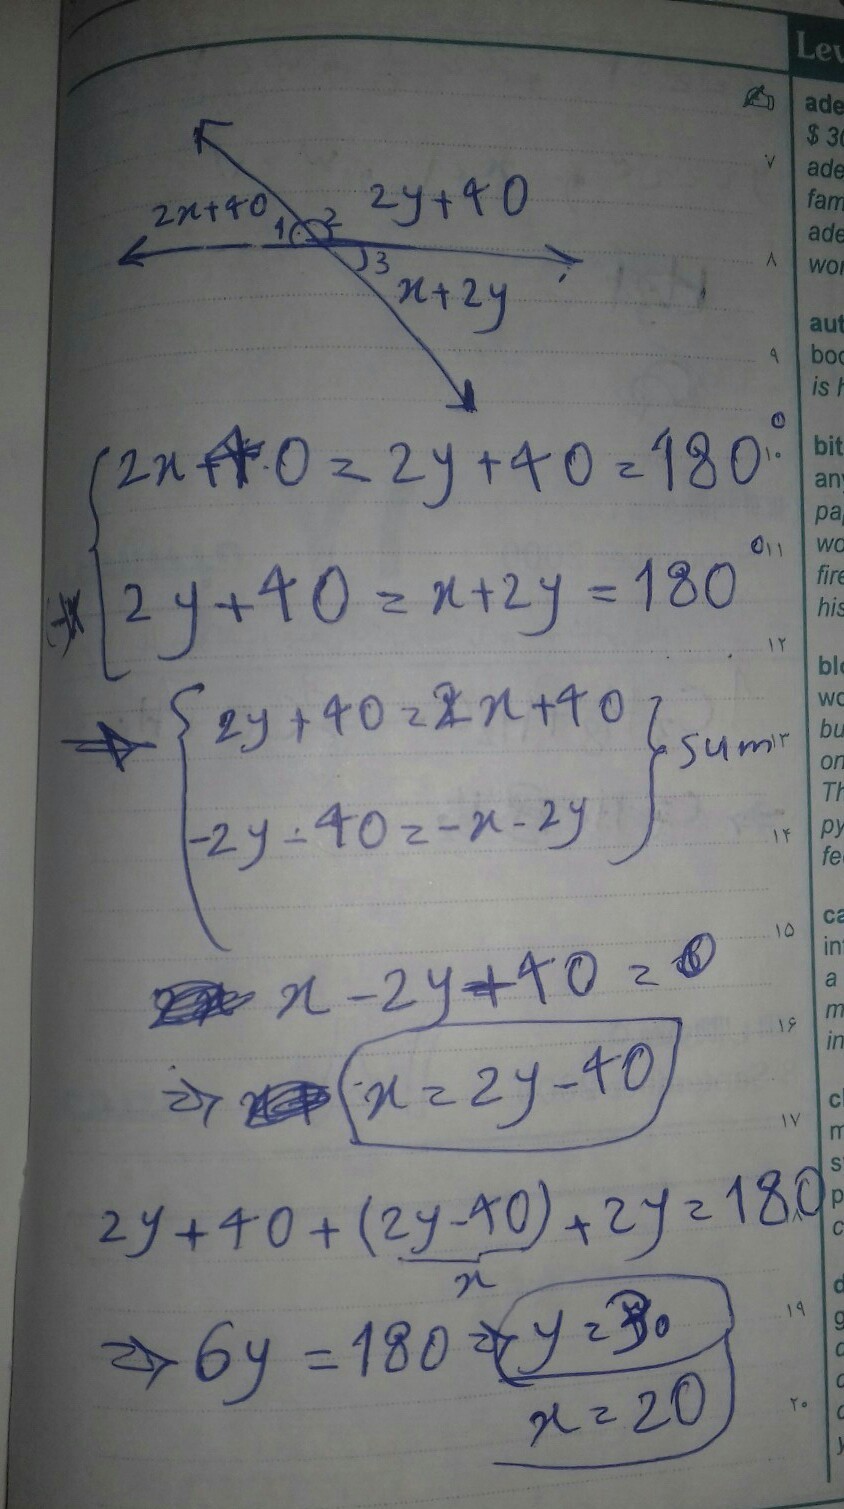 Lev
ade
$ 30
ade
fam
ade
wor
aut
boo
is h
bit
any
pap
wo
fire
his
blo
wo
bu
on
Th
py
fe
ca
in
a
m
in
cl
m
s
p
c
d
g
۷
۸
۹
۱۰
۱۱
۱۲
۱۳
۱۴
۱۵
۱۶
۱۷
۱۸
۱۹
۲۰
2x+40 1 2 2y+40
3
x+2y
2x+40=2y+40=180°
2y+40=x+2y=180°
⇒ 2y+40=2x+40
sum
-2y-40=-x-2y
x-2y+40=0
⇒ x=2y-40
2y+40+(2y-40)+2y=180
x
⇒ 6y=180 ⇒ y=30
x=20